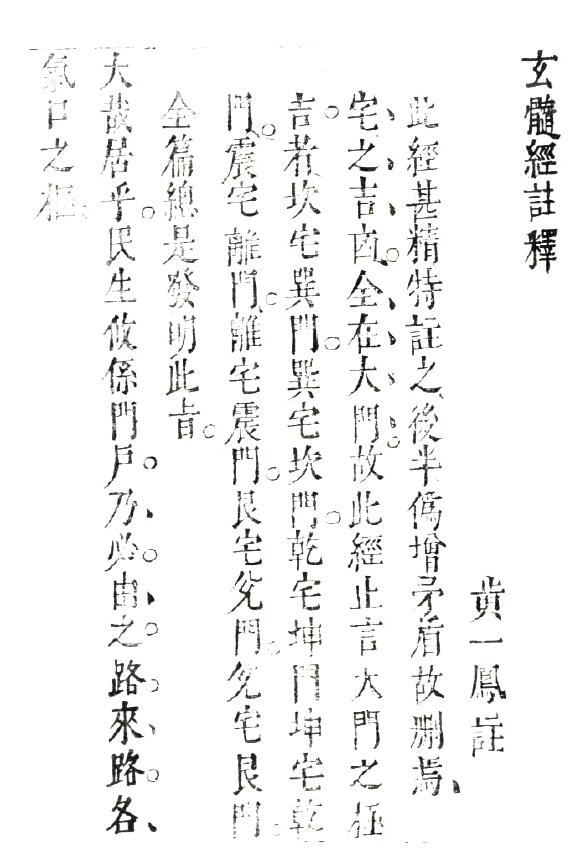 玄髓經註釋
黄一鳳註
此經甚精特註之後半僞增矛盾故删焉、
宅、之、吉、凶。全、在、大、門。故此經止言大門之極
吉者。坎宅巽門。巽宅坎門。乾宅坤門坤宅乾
門。震宅離門。離宅震門。艮宅兌門。兌宅艮門。
全篇總是發明此旨。
大哉居乎。民生攸係門戶。乃、必。由、之。路。來、路。各、
氣口之樞、